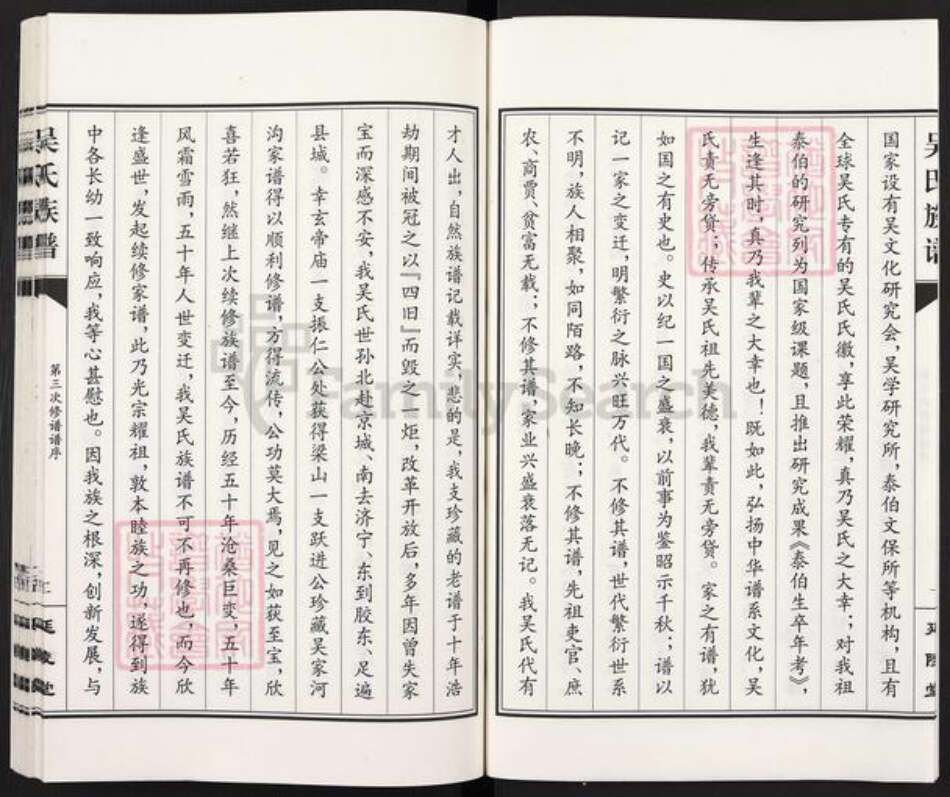 国家设有吴文化研究会，吴学研究所，泰伯文保所等机构，且有
全球吴氏专有的吴氏氏徽，享此荣耀，真乃吴氏之大幸；对我祖
泰伯的研究列为国家级课题，且推出研究成果《泰伯生卒年考》，
生逢其时，真乃我辈之大幸也！既如此，弘扬中华谱系文化，吴
氏责无旁贷；传承吴氏祖先美德，我辈责无旁贷。家之有谱，犹
如国之有史也。史以纪一国之盛衰，以前事为鉴昭示千秋；谱以
记一家之变迁，明繁衍之脉兴旺万代。不修其谱，世代繁衍世系
不明，族人相聚，如同陌路，不知长晚；不修其谱，先祖吏官、庶
农、商贾、贫富无载；不修其谱，家业兴盛衰落无记。我吴氏代有
才人出，自然族谱记载详实，悲的是，我支珍藏的老谱于十年浩
劫期间被冠之以『四旧』而毁之一炬，改革开放后，多年因曾失家
宝而深感不安，我吴氏世孙北赴京城、南去济宁、东到胶东、足遍
县城。幸玄帝庙一支振仁公处获得梁山一支跃进公珍藏吴家河
沟家谱得以顺利修谱，方得流传，公功莫大焉，见之如获至宝，欣
喜若狂，然继上次续修族谱至今，历经五十年沧桑巨变，五十年
风霜雪雨，五十年人世变迁，我吴氏族谱不可不再修也，而今欣
逢盛世，发起续修家谱，此乃光宗耀祖，敦本睦族之功，遂得到族
中各长幼一致响应，我等心甚慰也。因我族之根深，创新发展，与
第三次修谱谱序
吴氏族谱
FamilySearch